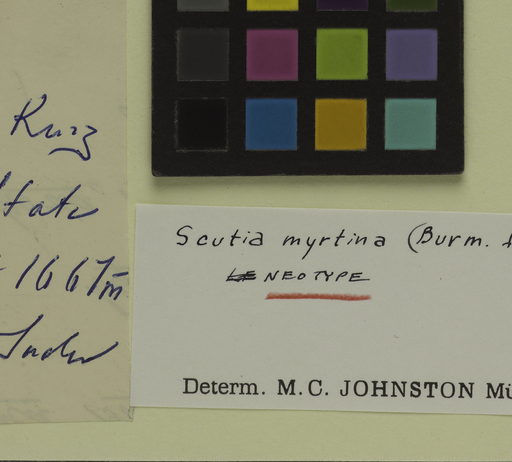 Kurz
1667m
Scutia myrtina (Burm. f
NEOTYPE
Determ. M.C. JOHNSTON Mü